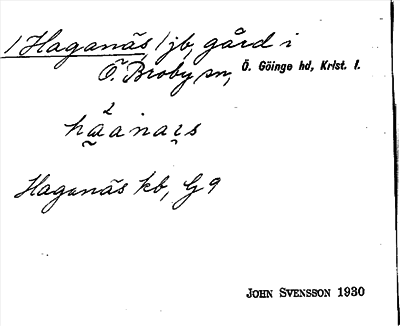 /Haganäs/ jb, gård i
Ö. Broby sn, Ö. Göinge hd, Krist. l.
2
haanaɪs
Haganäs kb, G 9
JOHN SVENSSON 1930